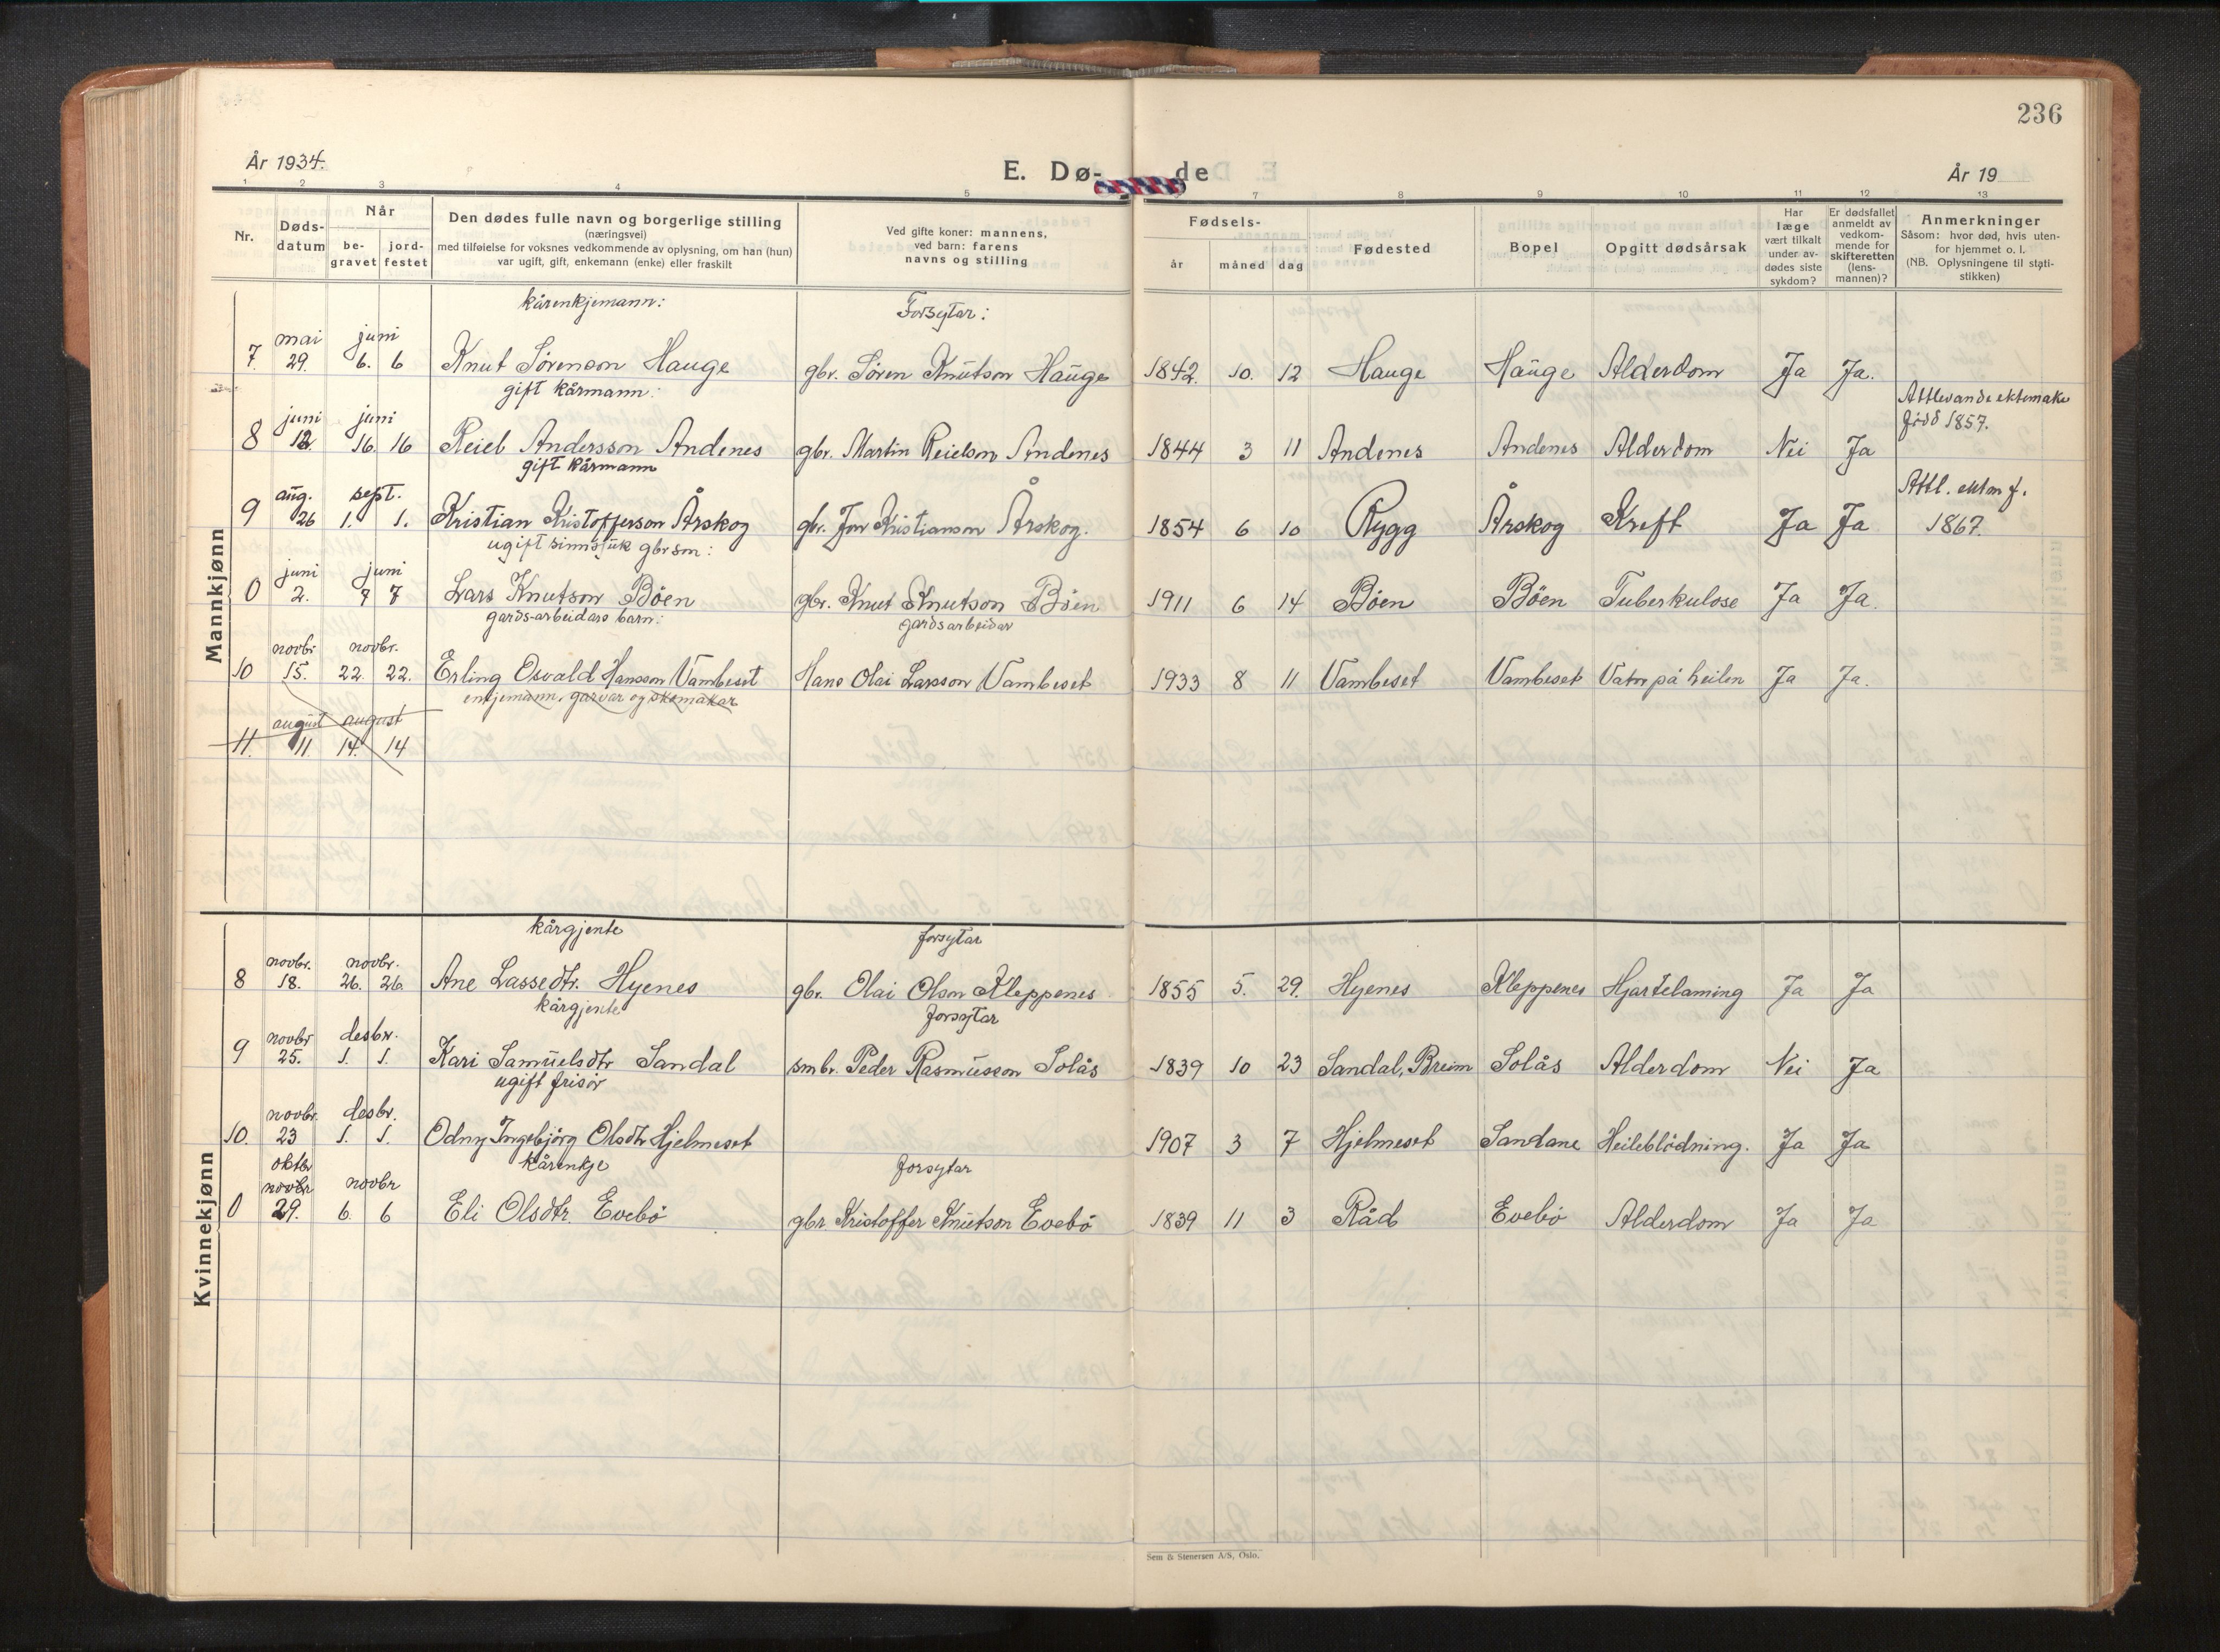 236
År 1934.
E. Dø- de
År 19
1 2 3 4 5 7 8 9 10 11 12 13
Nr.
Døds-
datum
Når
be-
gravet
jord-
festet
Den dødes fulle navn og borgerlige stilling
(næringsvei)
med tilføielse for voksnes vedkommende av oplysning, om han (hun)
var ugift, gift, enkemann (enke) eller fraskilt
Ved gifte koner: mannens,
ved barn: farens
navns og stilling
Fødsels-
år måned dag
Fødested
Bopel
Opgitt dødsårsak
Har
læge
vært tilkalt
under av-
dødes siste
sykdom?
Er dødsfallet
anmeldt av
vedkom-
mende for
skifteretten
(lens-
mannen)?
Anmerkninger
Såsom: hvor død, hvis uten-
for hjemmet o. l.
(NB. Oplysningene til stati-
stikken)
Mannkjønn
kårenkjemann: Forsytar:
mai juni
7. 29. 6. 6 Knut Sørenson Hauge gbr. Søren Knutson Hauge 1842. 10. 12 Hauge Hauge Alderdom Ja Ja.
gift kårmann: Attlevande ektemake
juni juni fødd 1857.
8 12. 16. 16 Reiel Andersson Andenes gbr. Martin Reielson Andenes 1844 3 11 Andenes Andenes Alderdom Nei Ja
gift kårmann
aug. sept. Attl. ektm f.
9 26 1. 1. Kristian Kristofferson Årskog gbr. Jon Kristianson Årskog. 1854 6 10 Rygg Årskog Kreft Ja Ja 1867.
ugift sinnsjuk gbrson:
juni juni
0 2. 7 7 Lars Knutson Böen gbr. Knut Knutson Böen 1911 6 14 Böen Böen Tuberkulose Ja Ja.
gards-arbeidars barn: gardsarbeidar
novbr novbr.
10 15. 22. 22. Erling Osvald Hansson Vambeset Hans Olai Larsson Vambeset 1933 8 11 Vambeset Vambeset Vatn på heilen Ja Ja.
enkjemann, garvar og skomakar
august august
11. 11. 14. 14
Kvinnekjønn
kårgjente forsytar
novbr. novbr.
8 18. 26. 26. Ane Lassedtr. Hyenes gbr. Olai Olson Kleppenes 1855 5. 29. Hyenes Kleppenes Hjartelaming Ja Ja
kårgjente forsytar
novbr desbr.
9 25. 1. 1. Kari Samuelsdtr Sandal smbr. Peder Rasmusson Solås 1839 10 23 Sandal, Breim Solås Alderdom Nei Ja
ugift frisör
novbr. desbr.
10. 23 1. 1. Odny Ingebjörg Olsdtr Hjelmeset 1907 3 7 Hjelmeset Sandane Heileblödning. Ja Ja
kårenkje forsytar
oktbr
novbr novbr
0 29. 6. 6 Eli Olsdtr. Evebö gbr Kristoffer Knutson Evebö 1839 11 3 Råd Evebö Alderdom Ja Ja
Sem & Stenersen A/S, Oslo.